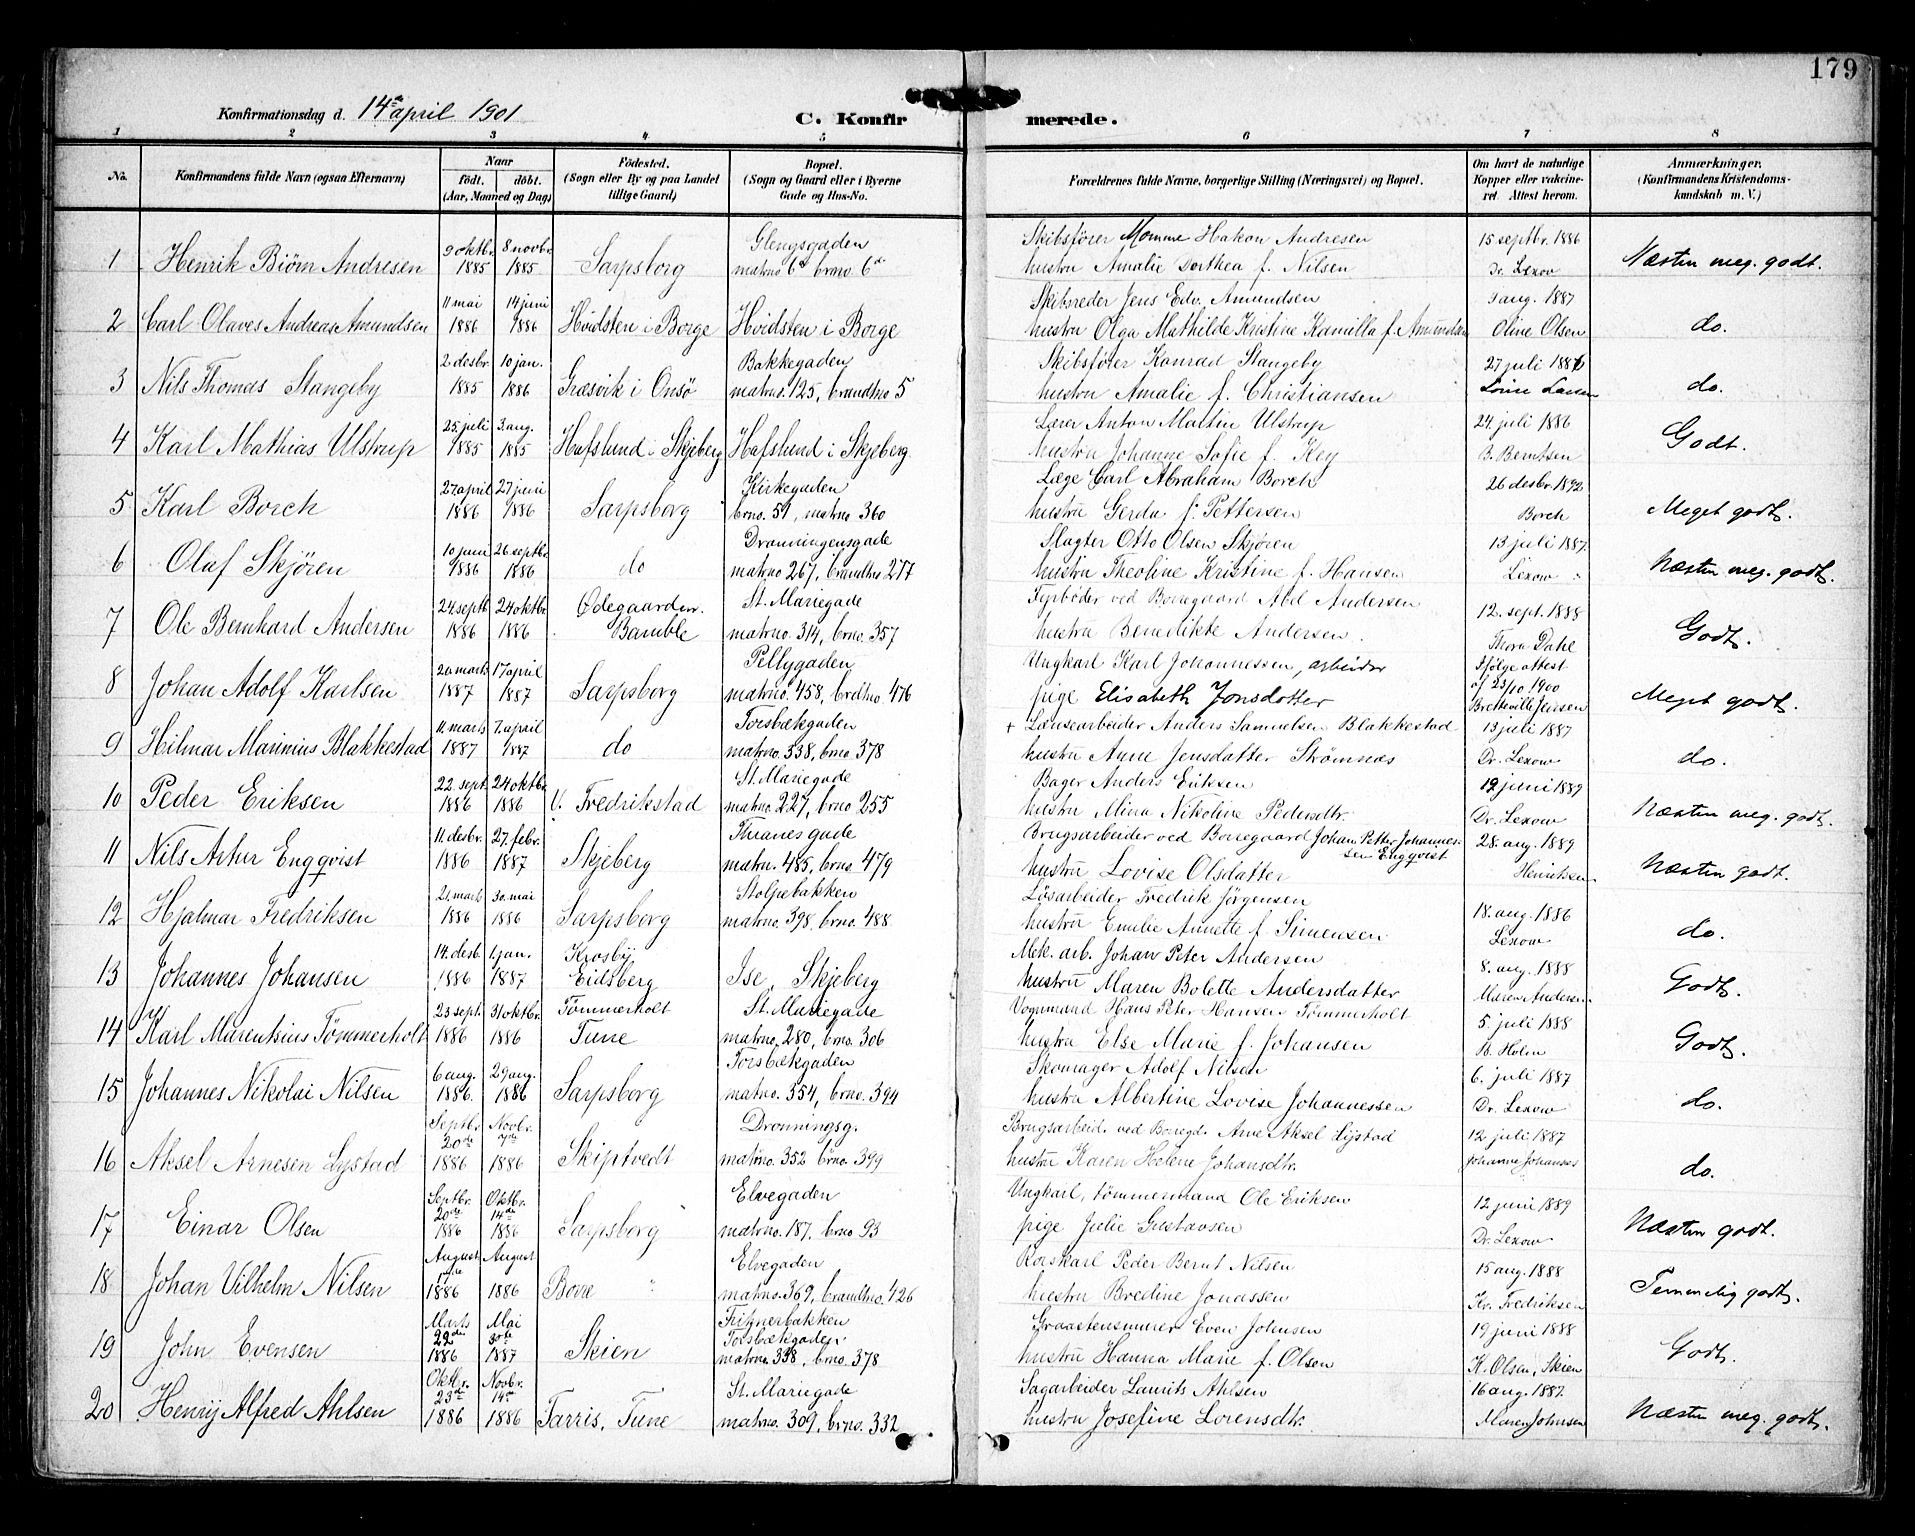 179
Konfirmationsdag d. 14de april 1901
C. Konfir merede.
1 2 3 4 5 6 7 8
No. Konfirmandens fulde Navn (ogsaa Efternavn) Naar Födested. Bopæl. Forældrenes fulde Navne, borgerlige Stilling (Næringsvei) og Bopæl. Om havt de naturlige Anmærkninger.
födt. döbt. (Sogn eller By og paa Landet (Sogn og Gaard eller i Byerne Kopper eller vakcine- (Konfirmandens Kristendoms-
(Aar, Maaned og Dag) tillige Gaard) Gade og Hus-No. ret. Attest herom. kundskab m. V.)
9 oktbr. 8 novbr. Glengsgaden Skibsfører Momme Hakon Andresen 15 septbr. 1886
1 Henrik Biørn Andresen 1885 1885 Sarpsborg matrno 6d brno. 6d hustru Amalie Dorthea f. Nilsen Dr. Lexow Næsten meg. godt.
11 mai 14 juni Skibsreder Jens Edv. Amundsen aug. 1887
2 Carl Olaves Andreas Amundsen 1886 1886 Hvidsten i Borge Hvidsten i Borge hustru Olga Mathilde Kristine Kamilla f. Amundsen Oline Olsen do.
2 desbr. 10 jan. Bakkegaden Skibsfører Konrad Stangeby 27 juli 1886
3 Nils Thomas Stangeby 1885 1886 Græsvik i Onsø matrno. 125, brandtno 5 hustru Amalie f. Christiansen Lovise Larsen do.
25 juli 3. aug. Lærer Anton Martin Ulstrup 24 juli 1886
4 Karl Mathias Ulstrup 1885 1885 Hafslund i Skjeberg Hafslund i Skjeberg hustru Johanne Sofie f. Key B. Berntsen Godt.
27. april 27 juni Kirkegaden Læge Carl Abraham Borch 26 desbr 1892
5 Karl Borch 1886 1886 Sarpsborg brno. 51, matrno 360 hustru Gerda f. Pettersen Borch Meget godt.
10 juni 26 septbr. Dronningensgade Slagter Otto Olsen Skjøren 13 juli 1887
6 Olaf Skjøren 1886 1886 do matrno 267, brandtno 277 hustru Theoline Kristine f. Hansen Lexow Næsten meg. godt.
24. septb. 24 oktbr. Ødegaarden. St. Mariegade Fyrbøder ved Borregaard Abel Andersen 12. sept. 1888
7 Ole Bernhard Andersen 1886 1886 Bamble matrno. 314, brno. 357 hustru Benedikte Andersen. Thora Dahl Godt.
20 marts 17 april Pellygaden Ungkarl Karl Johannessen, arbeider Ifølge attest
8 Johan Adolf Karlsen 1887 1887 Sarpsborg matrno. 458, brdtno 476 pige Elisabeth Jonsdotter af 23/10 1900 Meget godt.
Bretteville Jensen
11. marts 7. april Torsbækgaden + Lænsearbeider Anders Samuelsen Blakkestad 13 juli 1887
9 Hilmar Marinius Blakkestad 1887 1887 do matrno. 338, brno. 378 hustru Anne Jensdatter Strømnæs Dr. Lexow do.
22. sept. 24 oktbr. St. Mariegade Bager Anders Eriksen 12 juni 1889
10 Peder Eriksen 1886 1886 V. Fredrikstad matrno. 227, brno 255 hustru Alina Nikoline Pedersdtr. Dr. Lexow Næsten meg. godt.
11. desbr. 27. febr. Thranes gade Brugsarbeider ved Borregaard Johan Petter Johannes- 28. aug. 1889
sen Engqvist
11 Nils Artur Engqvist 1886 1887 Skjeberg matrn. 485, brno. 479 hustru Lovise Olsdatter Henriksen Næsten godt.
21. marts 30. mai Stolpebakken Løsarbeider Fredrik Jørgensen 18. aug. 1886
12 Hjalmar Fredriksen 1886 1886 Sarpsborg matrno. 398, brno. 488 hustru Emilie Annette f. Simensen Lexow do.
14. desb. 1. jan. Krosby Mek. arb. Johan Peter Andersen 8. aug. 1888
13 Johannes Johansen 1886 1887 Eidsberg Ise, Skjeberg hustru Maren Bolette Andersdatter Maren Andersen Godt.
23 sept. 31 oktbr. Tømmerholt St. Mariegade Vognmand Hans Peter Hansen Tømmerholt 5. juli 1888
14 Karl Marentsius Tømmerholt 1886 1886 Tune matrno. 280, brno. 306 hustru Else Marie f. Johansen B. Holm Godt.
6 aug. 29 aug. Torsbækgaden Skomager Adolf Nilsen 6. juli 1887
15 Johannes Nikolai Nilsen 1886. 1886 Sarpsborg matrno. 354, brno. 394 hustru Albertine Lovise Johannessen Dr. Lexow do.
Septbr. Novbr. Dronningsg. Brugsarbeid. ved Borregd. Arne Aksel Lystad 12 juli 1887
20de 7de
16 Aksel Arnesen Lystad 1886 1886 Skiptvedt matrno. 352 brno. 399 hustru Karen Helene Johansdtr. Johanne Johansen do.
Septbr. Oktbr. Elvegaden Ungkarl, tømmermand Ole Eriksen 12 juni 1889
20de 14de
17 Einar Olsen 1886 1886 Sarpsborg matrno. 187, brno 93 pige Julie Gustavsen Dr. Lexow Næsten godt.
August August Elvegaden Rorskarl Peder Bernt Nilsen 15 aug. 1888
18 Johan Vilhelm Nilsen 1886 1886 Borre matrno. 369, brandtno. 426 hustru Bredine Jonassen Kr. Fredriksen Temmelig godt.
Marts Mai Fritznerbakken Graastensmurer Even Johnsen 19 juni 1888
22de 30te Torsbækgaden
19 John Evensen 1886 1887 Skien matrno. 338, brno. 378 hustru Hanna Marie f. Olsen K. Olsen, Skien Godt.
Oktbr. Novbr. St. Mariegade Sagarbeider Laurits Ahlsen 16 aug. 1887.
23de 14de
20 Henry Alfred Ahlsen 1886 1886 Tarris, Tune matrno. 309, brno. 332 hustru Josefine Lorensdtr. Maren Johnsen Næsten meg. godt.